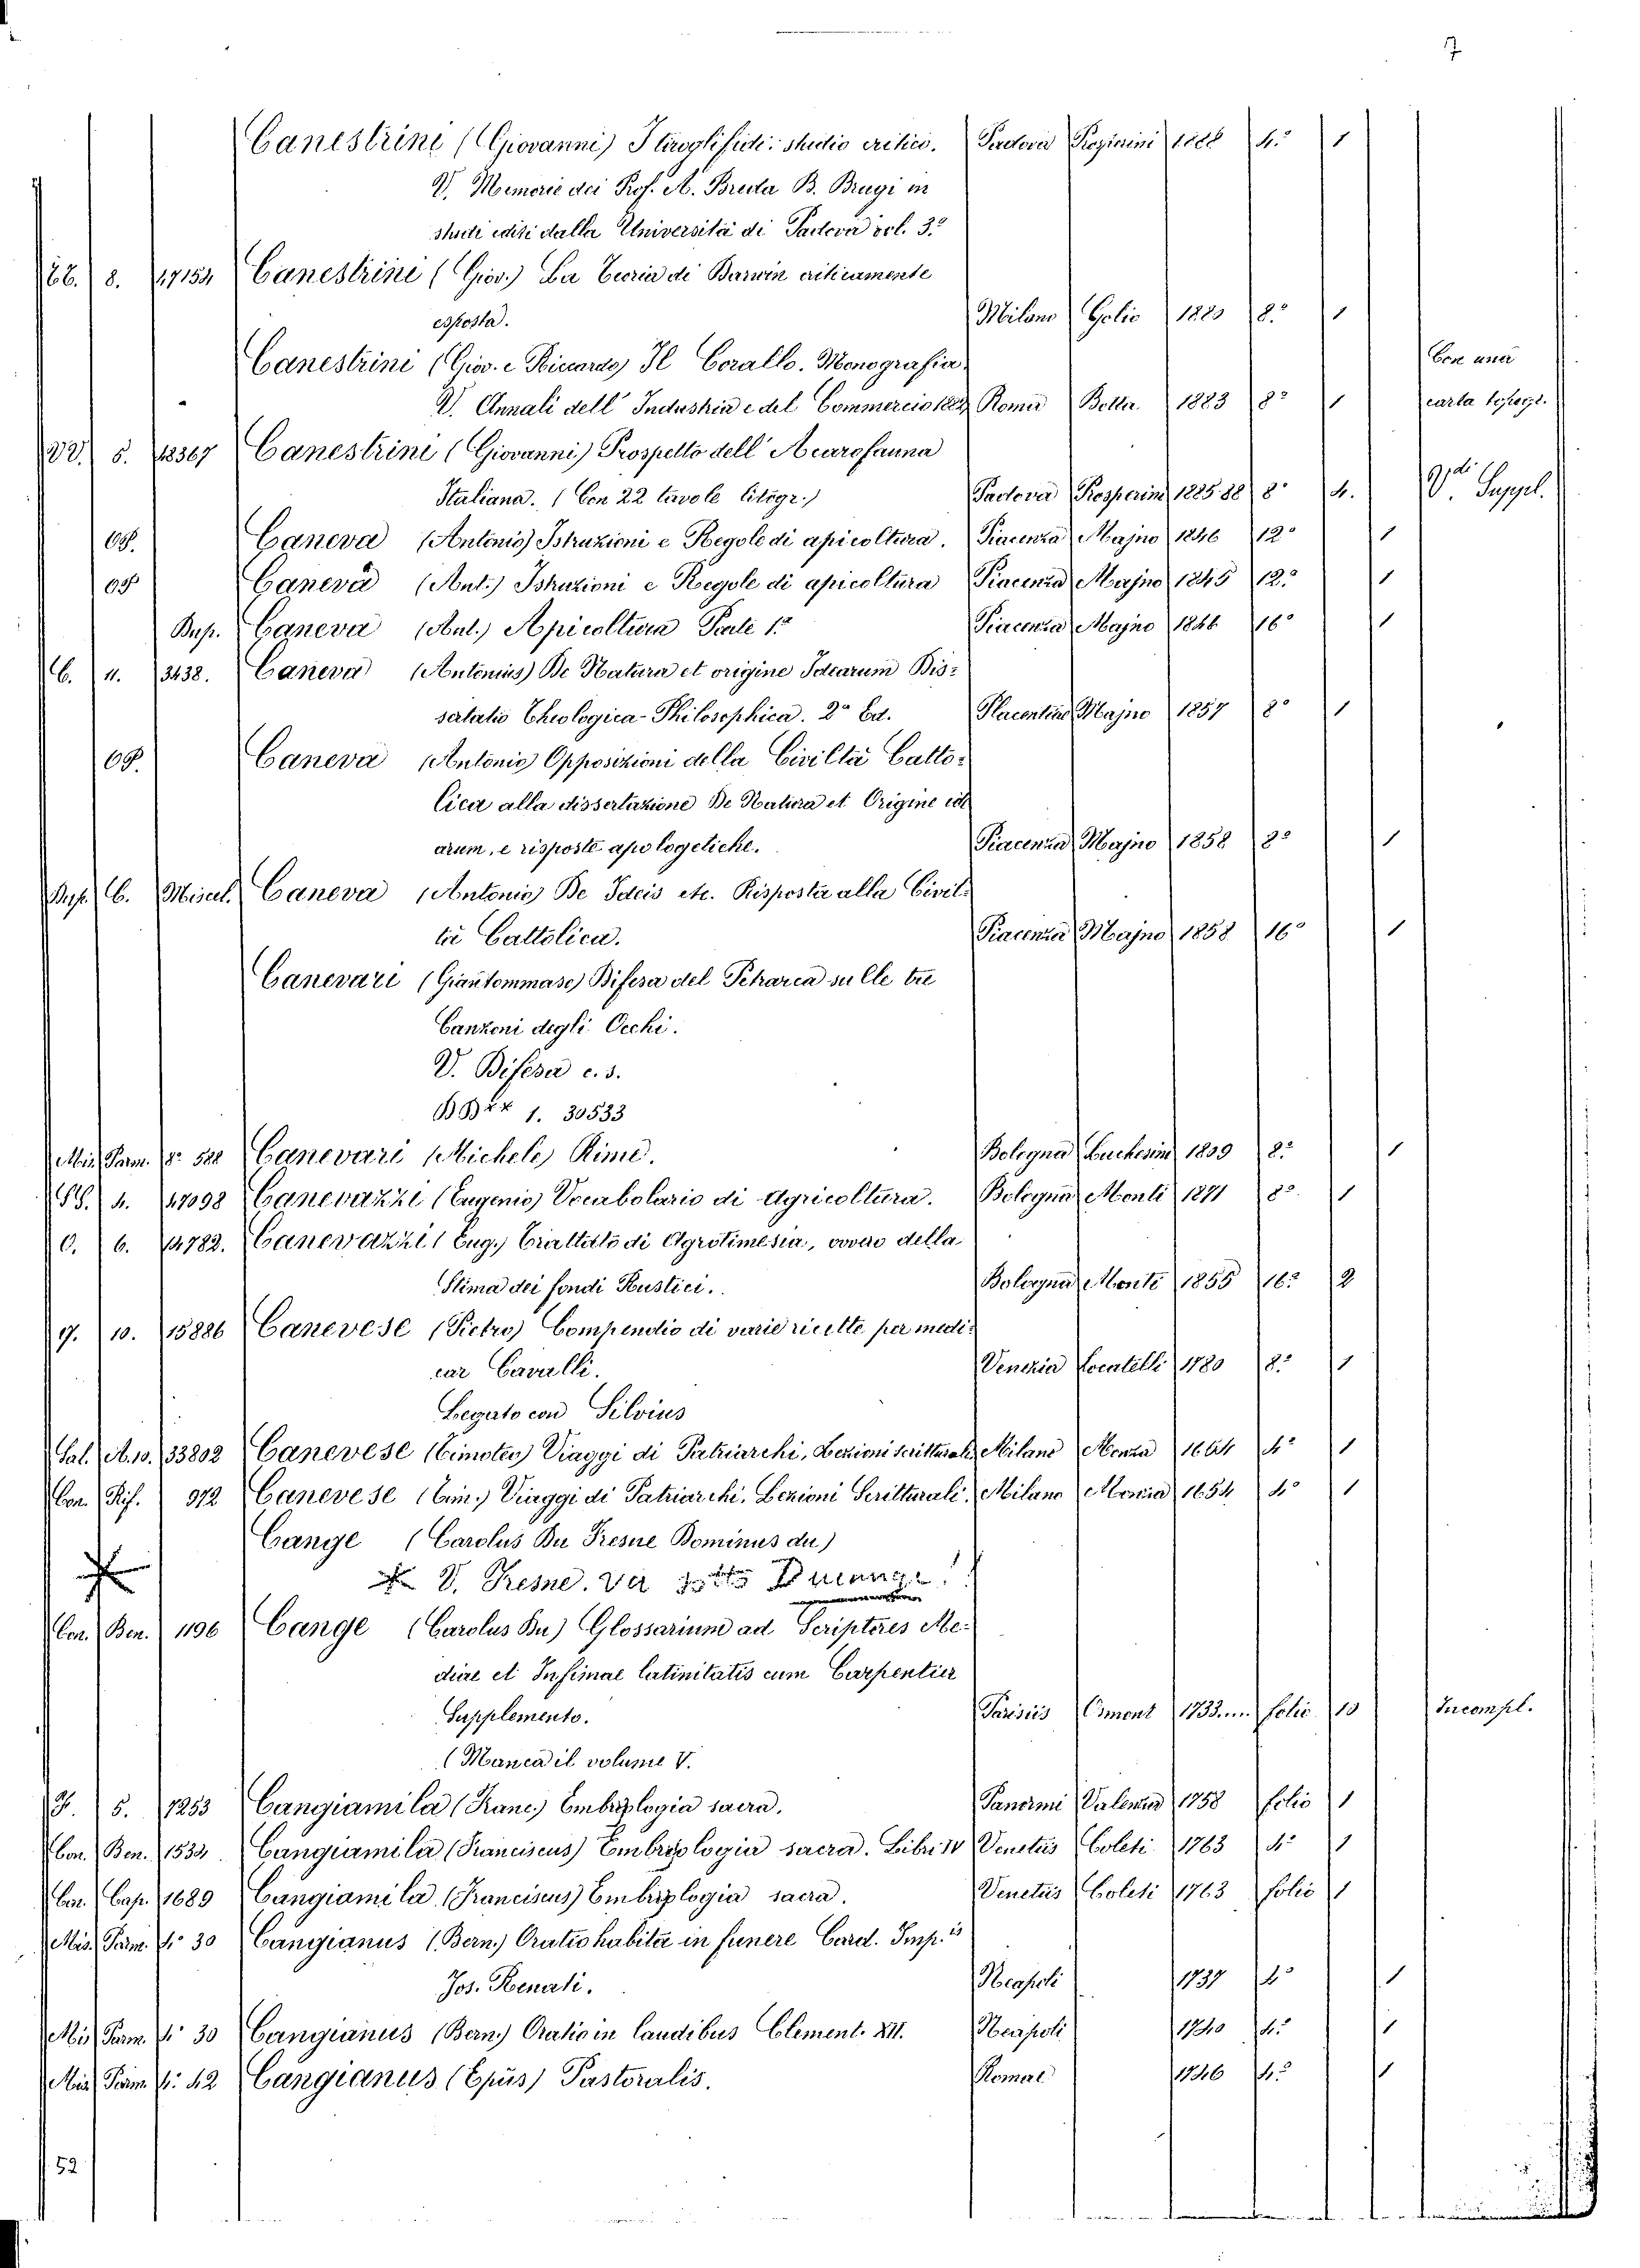 7
Canestrini (Giovanni) I Tiroglifidi: studio critico. Padova Prosperini 1888 4.º 1
V. Memorie dei Prof. A. Breda B. Brugi in
studi editi dalla Università di Padova vol. 3.º
BB. 8. 17154 Canestrini (Giov.) La Teoria di Darwin criticamente
esposta. Milano 1880 8.º 1
Canestrini (Giov. e Riccardo) Il Corallo. Monografia. Con una
V. Annali dell' Industria e del Commercio 1882 Roma Botta 1883 8º 1 carta topogr.
VV. 5. 18367 Canestrini (Giovanni) Prospetto dell' Acarofauna
Italiana. (Con 22 tavole litogr.) Padova Prosperini 1885-88 8º 4. Vdi Suppl.
OP. Caneva (Antonio) Istruzioni e Regole di apicoltura. Piacenza Majno 1846 12º 1
OP Caneva (Ant.) Istruzioni e Regole di apicoltura Piacenza Majno 1845 12.º 1
Dup. Caneva (Ant.) Apicoltura Parte 1.ª Piacenza Majno 1846 16º 1
C. 11. 3438. Caneva (Antonius) De Natura et origine Idearum Dis=
sertatio Theologica-Philosophica. 2ª Ed. Placentiae Majno 1857 8º 1
OP. Caneva (Antonio) Opposizioni della Civiltà Catto=
lica alla dissertazione De Natura et Origine ide
arum, e risposte apologetiche. Piacenza Majno 1858 8º 1
Dup. C. Miscel. Caneva (Antonio) De Ideis etc. Risposta alla Civil=
tà Cattolica. Piacenza Majno 1858 16º 1
Canevari (Giantommaso) Difesa del Petrarca sulle tre
Canzoni degli Occhi.
V. Difesa c. s.
BB xx 1. 30533
Mis. Parm. 8º 588 Canevari (Michele) Rime. Bologna Lucchesini 1809 8.º 1
SS. 4. 47098 Canevazzi (Eugenio) Vocabolario di Agricoltura. Bologna Monti 1871 8º 1
O. 6. 14782. Canevazzi (Eug.) Trattato di Agrotimesia, ovvero della
Stima dei fondi Rustici. Bologna Monti 1855 16.º 2
G. 10. 15886 Canevese (Pietro) Compendio di varie ricette per medi=
car Cavalli. Venezia Locatelli 1780 8.º 1
Legato con Silvius
Sal. A. 10. 33802 Canevese (Timoteo) Viaggi di Patriarchi, Lezioni scritturali, Milano Monza 1654 4º 1
Con. Rif. 972 Canevese (Tim.) Viaggi di Patriarchi, Lezioni Scritturali, Milano Monza 1654 4º 1
Cange (Carolus Du Fresne Dominus du)
V. Fresne. va sotto Ducange!
Con. Ben. 1196 Cange (Carolus Du) Glossarium ad Scriptores Me=
diae et Infimae latinitatis cum Carpentier
Supplemento. Parisiis Osmont 1733.... folio 10 Incompl.
(Manca il volume V.
F. 5. 1253 Cangiamila (Franc.) Embryologia sacra. Panormi Valenza 1758 folio 1
Con. Ben. 1534 Cangiamila (Franciscus) Embryologia sacra. Libri IV Venetiis Coleti 1763 4º 1
Con. Cap. 1689 Cangiamila (Franciscus) Embryologia sacra. Venetiis Coleti 1763 folio 1
Mis. Parm. 4º 30 Cangianus (Bern.) Oratio habita in funere Card. Imp.is
Jos. Renati. Neapoli 1737 4º 1
Mis. Parm. 4º 30 Cangianus (Bern.) Oratio in laudibus Clement. XII. Neapoli 1740 4.º 1
Mis. Parm. 4º 42 Cangianus (Epũs) Pastoralis. Romae 1746 4.º 1
52